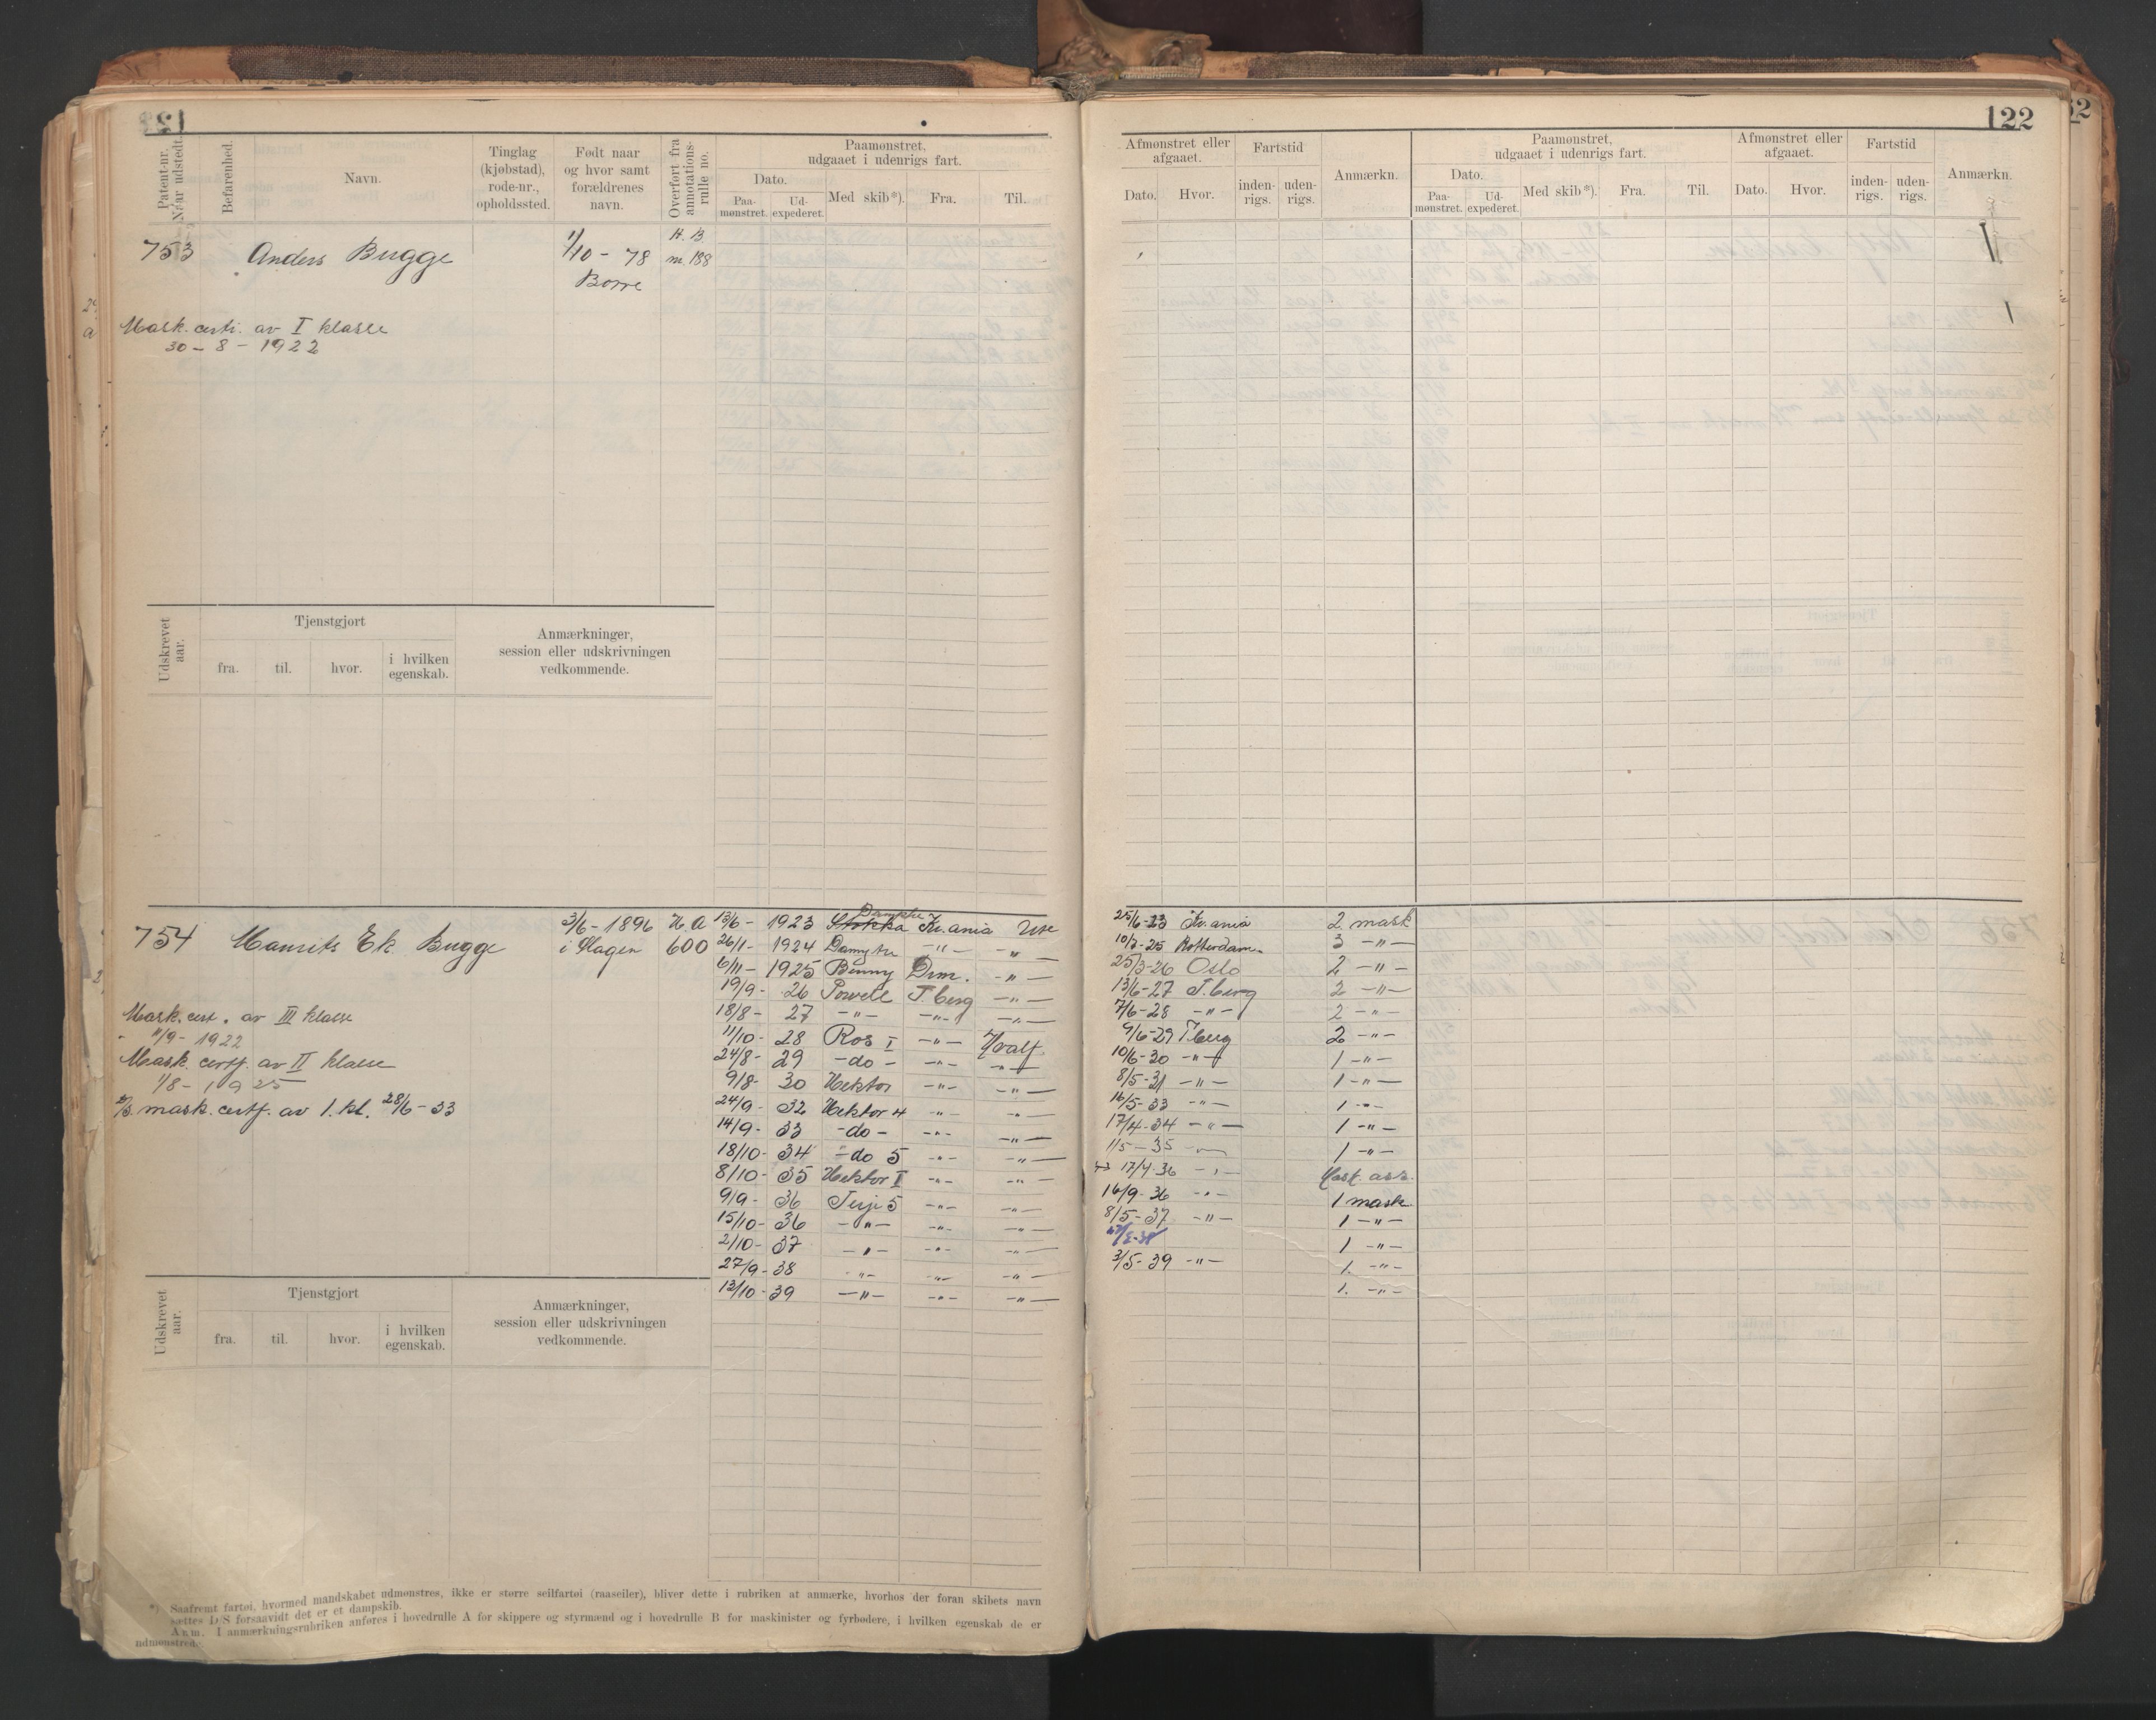 122
Patent-nr. Naar udstedt.
Befarenhed.
Navn.
Tinglag (kjøbstad), rode-nr., opholdssted.
Født naar og hvor samt forældrenes navn.
Overført fra annotations-rulle no.
Paamønstret, udgaaet i udenrigs fart.
Dato.
Paa-mønstret.
Ud-expederet.
Med skib*).
Fra.
Til.
Afmønstret eller afgaaet.
Dato.
Hvor.
Fartstid
inden-rigs.
uden-rigs.
Anmærkn.
Paamønstret, udgaaet i udenrigs fart.
Dato.
Paa-mønstret.
Ud-expederet.
Med skib*).
Fra.
Til.
Afmønstret eller afgaaet.
Dato.
Hvor.
Fartstid
inden-rigs.
uden-rigs.
Anmærkn.
753 Anders Bugge 1/10 - 78 H. B
Borre m. 188
Mask. certi. av I klasse
30 - 8 - 1922
Udskrevet aar.
Tjenstgjort
fra.
til.
hvor.
i hvilken egenskab.
Anmærkninger, session eller udskrivningen vedkommende.
754 Maurits Ek. Bugge 3/6 - 1896 H. A
i Slagen 600
Mask. cert. av III klasse
11/9 - 1922
Mask. certf. av II klasse
1/8 - 1925
mask. certf. av 1. kl. 28/6 - 33
13/6 - 1923 Kr.ania Use 25/6-23 Kr.ania 2 mask
26/1 - 1924 -"- -"- 10/2-25 Rotterdam 3 -"-
6/11 - 1925 Benny Drm. -"- 25/3-26 Oslo 2 -"-
19/9 - 26 Powell T.berg -"- 13/6-27 T.berg 2 -"-
18/8 - 27 -"- -"- -"- 7/6-28 -"- 2 -"-
11/10 - 28 Ros I -"- Hvalf. 9/6-29 T.berg 2 -"-
24/8 - 29 -do- -"- -"- 10/6-30 -"- 1 -"-
9/8 - 30 Hektor -"- -"- 8/5-31 -"- 1 -"-
24/9 - 32 Hektor 4 -"- -"- 16/5-33 -"- 1 -"-
14/9 - 33 -do- -"- -"- 17/4-34 -"- 1 -"-
18/10 - 34 -do 5 -"- -"- 1/5-35 -"- 1 -"-
8/10 - 35 Hektor I -"- -"- 17/4-36 -"- ass.
9/9 - 36 Terje 5 -"- -"- 16/9-36 -"- 1 mask.
15/10 - 36 -"- -"- -"- 8/5-37 -"- 1 -"-
2/10 - 37 -"- -"- -"- 1 -"-
27/9 - 38 -"- -"- -"- 3/5-39 -"- 1. -"-
13/10 - 39 -"- -"- -"- 1. -"-
Udskrevet aar.
Tjenstgjort
fra.
til.
hvor.
i hvilken egenskab.
Anmærkninger, session eller udskrivningen vedkommende.
*) Saafremt fartøi, hvormed mandskabet udmønstres, ikke er større seilfartøi (raaseiler), bliver dette i rubriken at anmærke, hvorhos der foran skibets navn
sættes D/S forsaavidt det er et dampskib.
Anm. I anmærkningsrubriken anføres i hovedrulle A for skippere og styrmænd og i hovedrulle B for maskinister og fyrbødere, i hvilken egenskab de er
udmønstred.